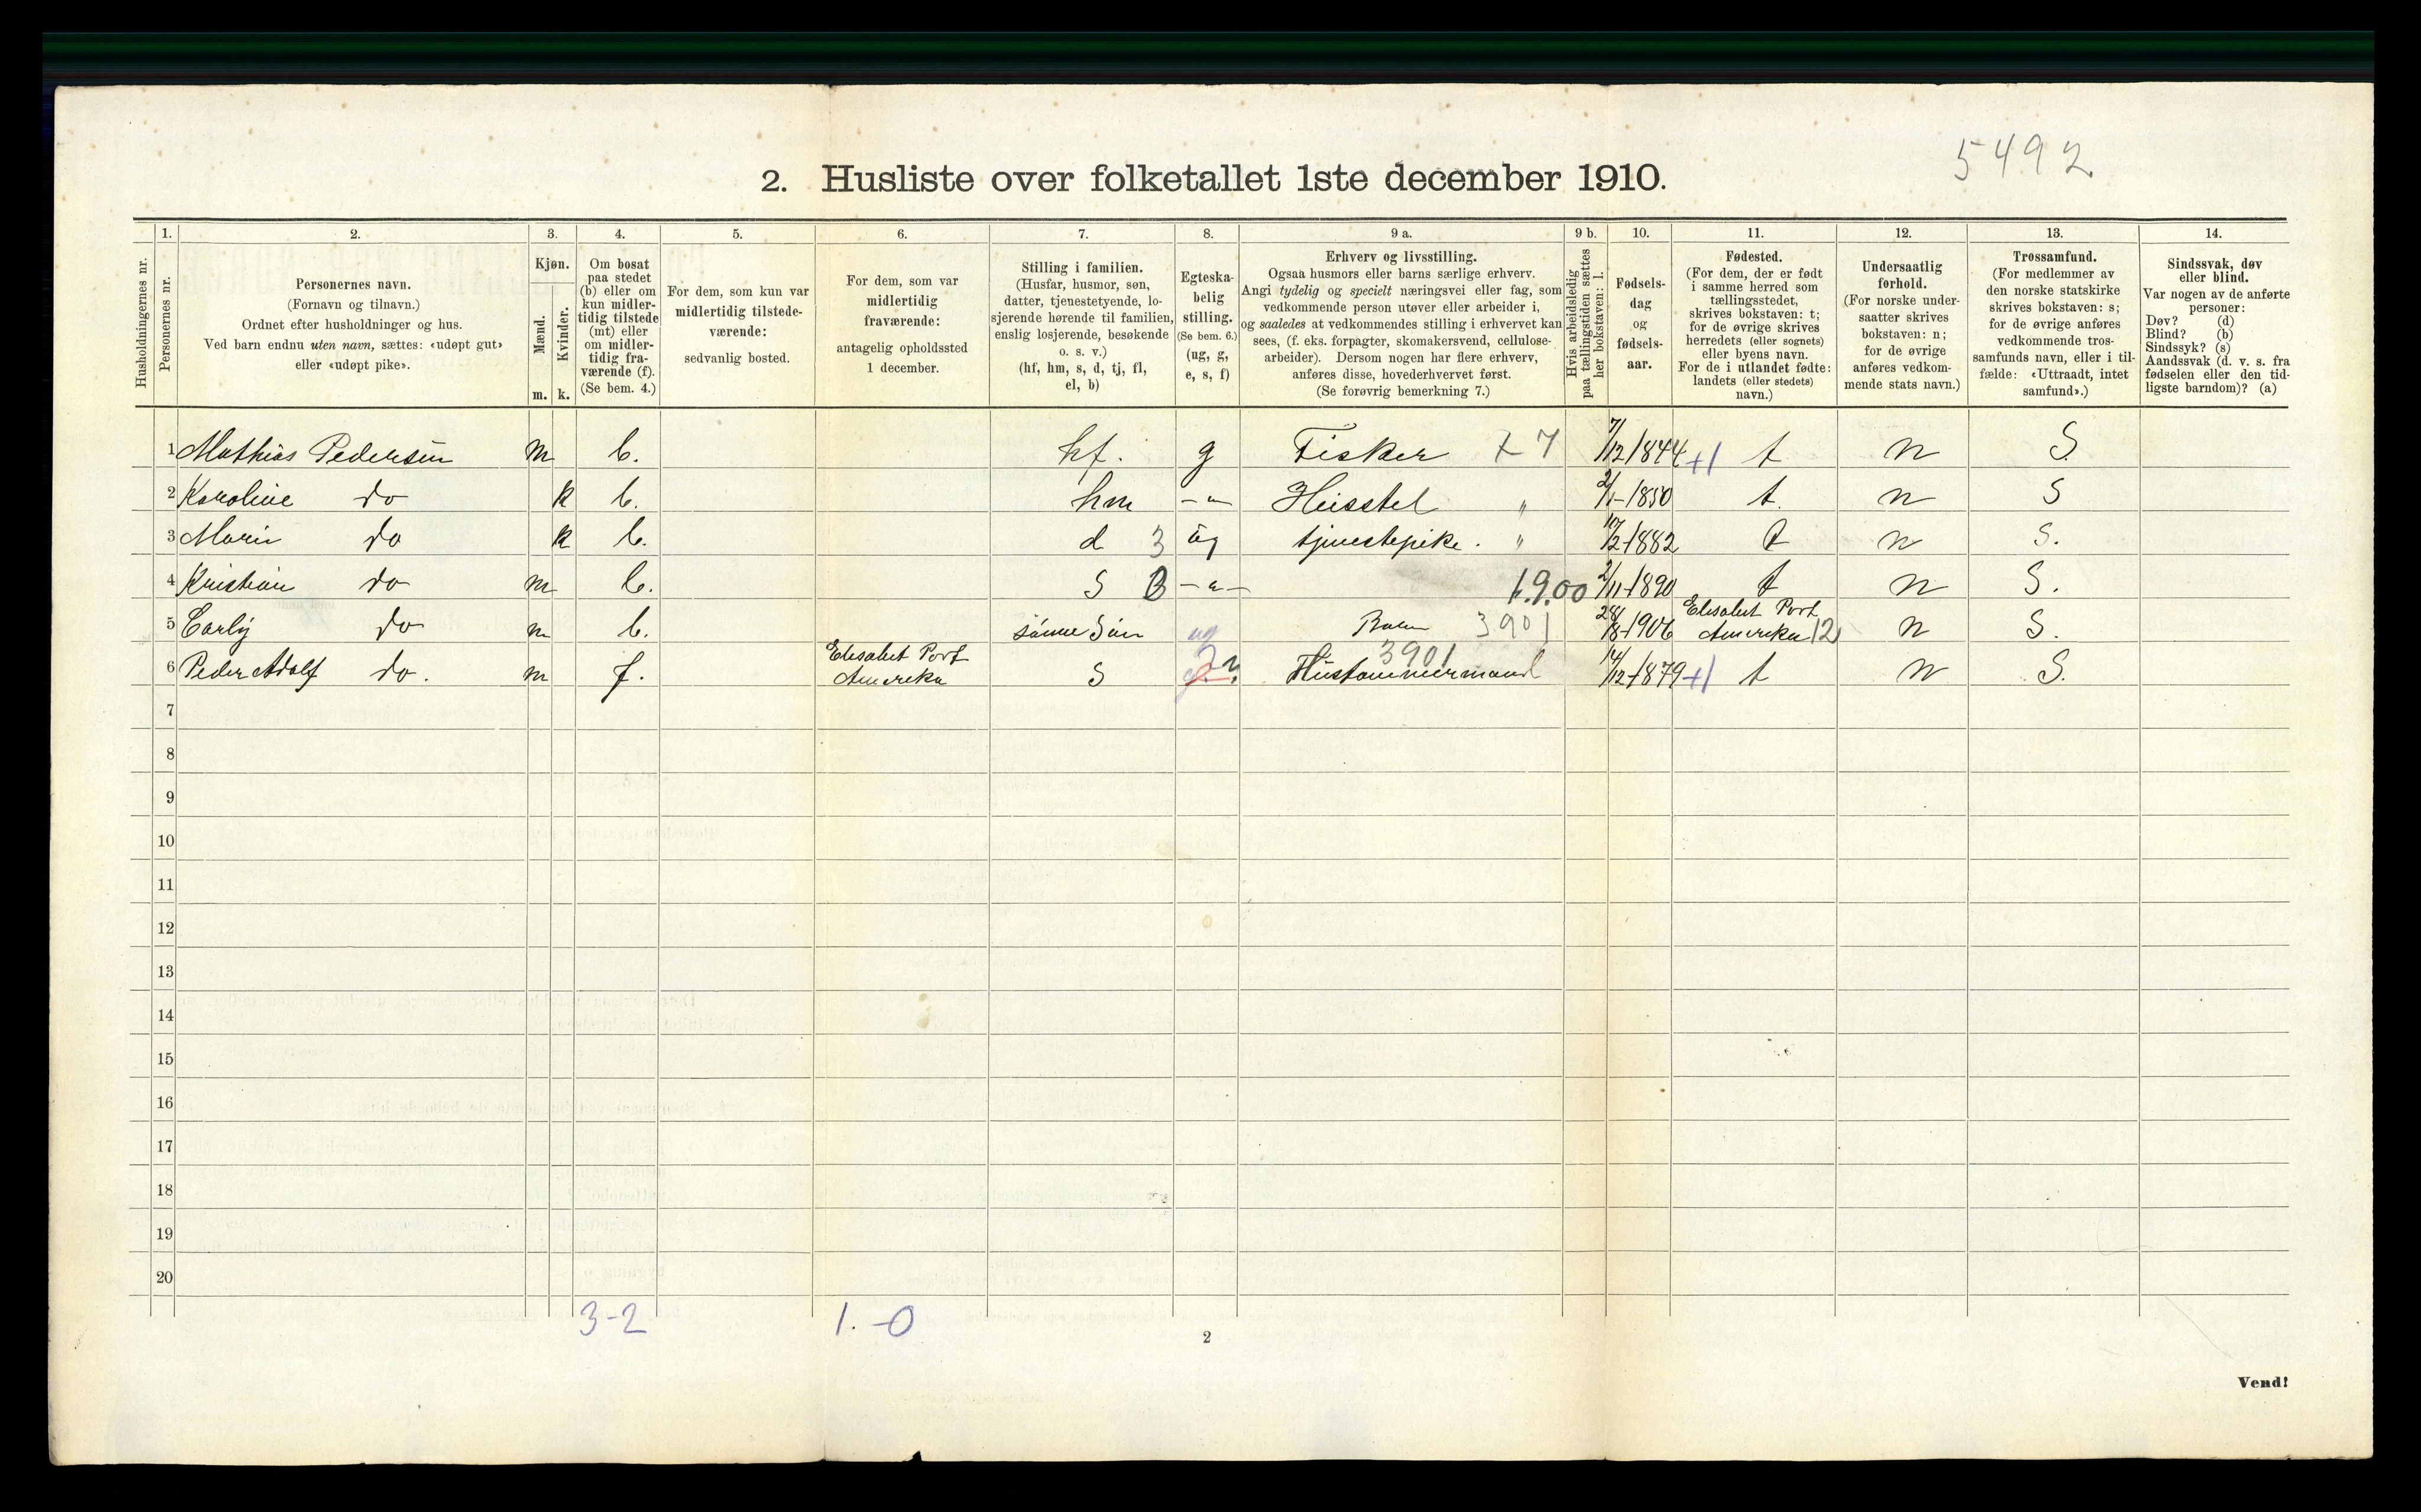 5492
2. Husliste over folketallet 1ste december 1910.
Husholdningernes nr.
1.
Personernes nr.
2.
Personernes navn.
(Fornavn og tilnavn.)
Ordnet efter husholdninger og hus.
Ved barn endnu uten navn, sættes: «udøpt gut»
eller «udøpt pike».
3.
Kjøn.
Mænd.
Kvinder.
m. k.
4.
Om bosat
paa stedet
(b) eller om
kun midler-
tidig tilstede
(mt) eller
om midler-
tidig fra-
værende (f).
(Se bem. 4.)
5.
For dem, som kun var
midlertidig tilstede-
værende:
sedvanlig bosted.
6.
For dem, som var
midlertidig
fraværende:
antagelig opholdssted
1 december.
7.
Stilling i familien.
(Husfar, husmor, søn,
datter, tjenestetyende, lo-
sjerende hørende til familien,
enslig losjerende, besøkende
o. s. v.)
(hf, hm, s, d, tj, fl,
el, b)
8.
Egteska-
belig
stilling.
(Se bem. 6.)
(ug, g,
e, s, f)
9 a.
Erhverv og livsstilling.
Ogsaa husmors eller barns særlige erhverv.
Angi tydelig og specielt næringsvei eller fag, som
vedkommende person utøver eller arbeider i,
og saaledes at vedkommendes stilling i erhvervet kan
sees, (f. eks. forpagter, skomakersvend, cellulose-
arbeider). Dersom nogen har flere erhverv,
anføres disse, hovederhvervet først.
(Se forøvrig bemerkning 7.)
9 b.
Hvis arbeidsledig
paa tællingstiden sættes
her bokstaven: l.
10.
Fødsels-
dag
og
fødsels-
aar.
11.
Fødested.
(For dem, der er født
i samme herred som
tællingsstedet,
skrives bokstaven: t;
for de øvrige skrives
herredets (eller sognets)
eller byens navn.
For de i utlandet fødte:
landets (eller stedets)
navn.)
12.
Undersaatlig
forhold.
(For norske under-
saatter skrives
bokstaven: n;
for de øvrige
anføres vedkom-
mende stats navn.)
13.
Trossamfund.
(For medlemmer av
den norske statskirke
skrives bokstaven: s;
for de øvrige anføres
vedkommende tros-
samfunds navn, eller i til-
fælde: «Uttraadt, intet
samfund».)
14.
Sindssvak, døv
eller blind.
Var nogen av de anførte
personer:
Døv? (d)
Blind? (b)
Sindssyk? (s)
Aandssvak (d. v. s. fra
fødselen eller den tid-
ligste barndom)? (a)
1 Mathias Pedersen m b. hf. g Fisker 7/12 1844 +1 t n S.
2 Karoline do k b. hm -"- Husstel " 2/1-1850 t. n S
3 Marie do k b. d 3 ug tjenestepike. " 2-1882 t n S.
4 Kristian do m b. S -"- 1.9.00 2/11-1890 t n S.
5 do m b. sønne Søn ug Barn 3901 28/8-1906 Elisabet Port Amerika 12 n S.
6 Peder Adolf do. m f. Elisabet Port Amerika S 3901 Hustømmermand 14/12-1879 +1 t n S.
7
8
9
10
11
12
13
14
15
16
17
18
19
20
3-2 1.-0
2
Vend!